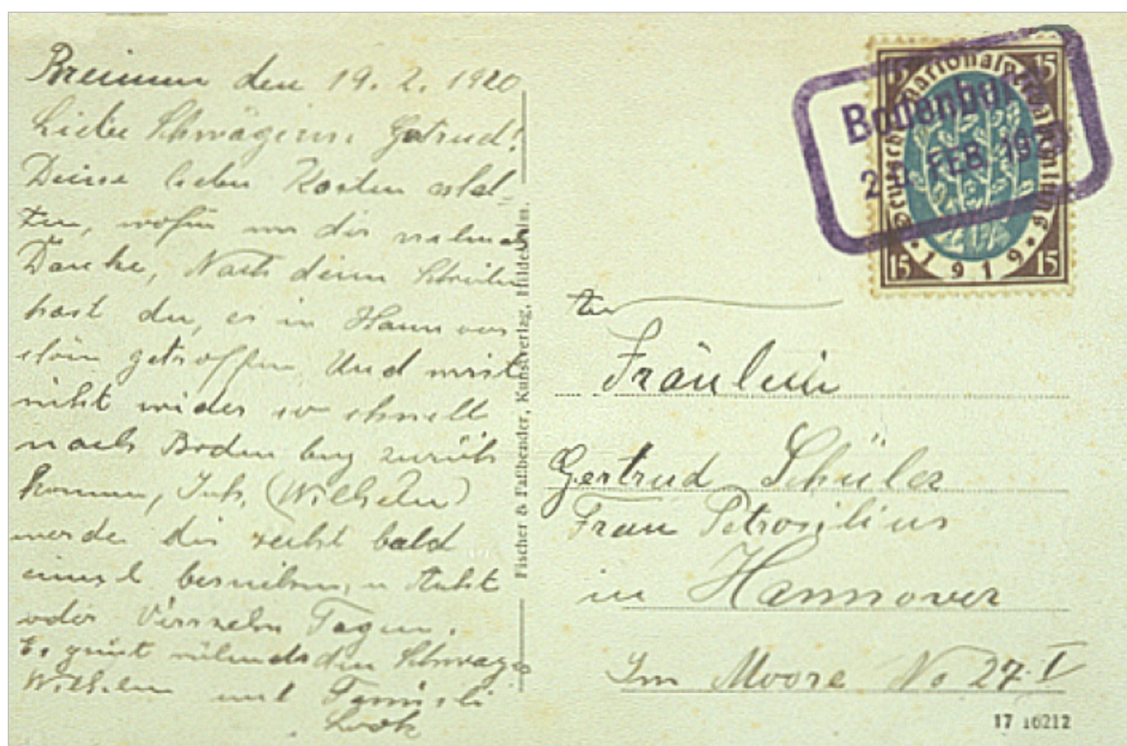 den 19. 2. 1920
Liebe Schwägerin Getrud!
Deine lieben Karten erhal-
ten, wofür wir dir
Danke, Nach deinen Schreiben
hast du, es in Hannover
getroffen Und wirst
nicht wider so schnell
nach Bodenburg zurück
kommen, Ich, (Wilhelm)
werde dir recht bald
einmal besuchen, in Acht
oder Vierzehn Tagen.
Es grüst den Schwager
Wilhelm und Famieli
Fischer & Faßbender, Kunstverlag, Hildesheim.
Bodenburg
FEB
Deutsche Nationalversammlung
1919
15 15
15 15
An
Fräulein
Gertrud Schüler
Frau Petrosilius
in Hannover
Im Moore No 27 I
17 16212